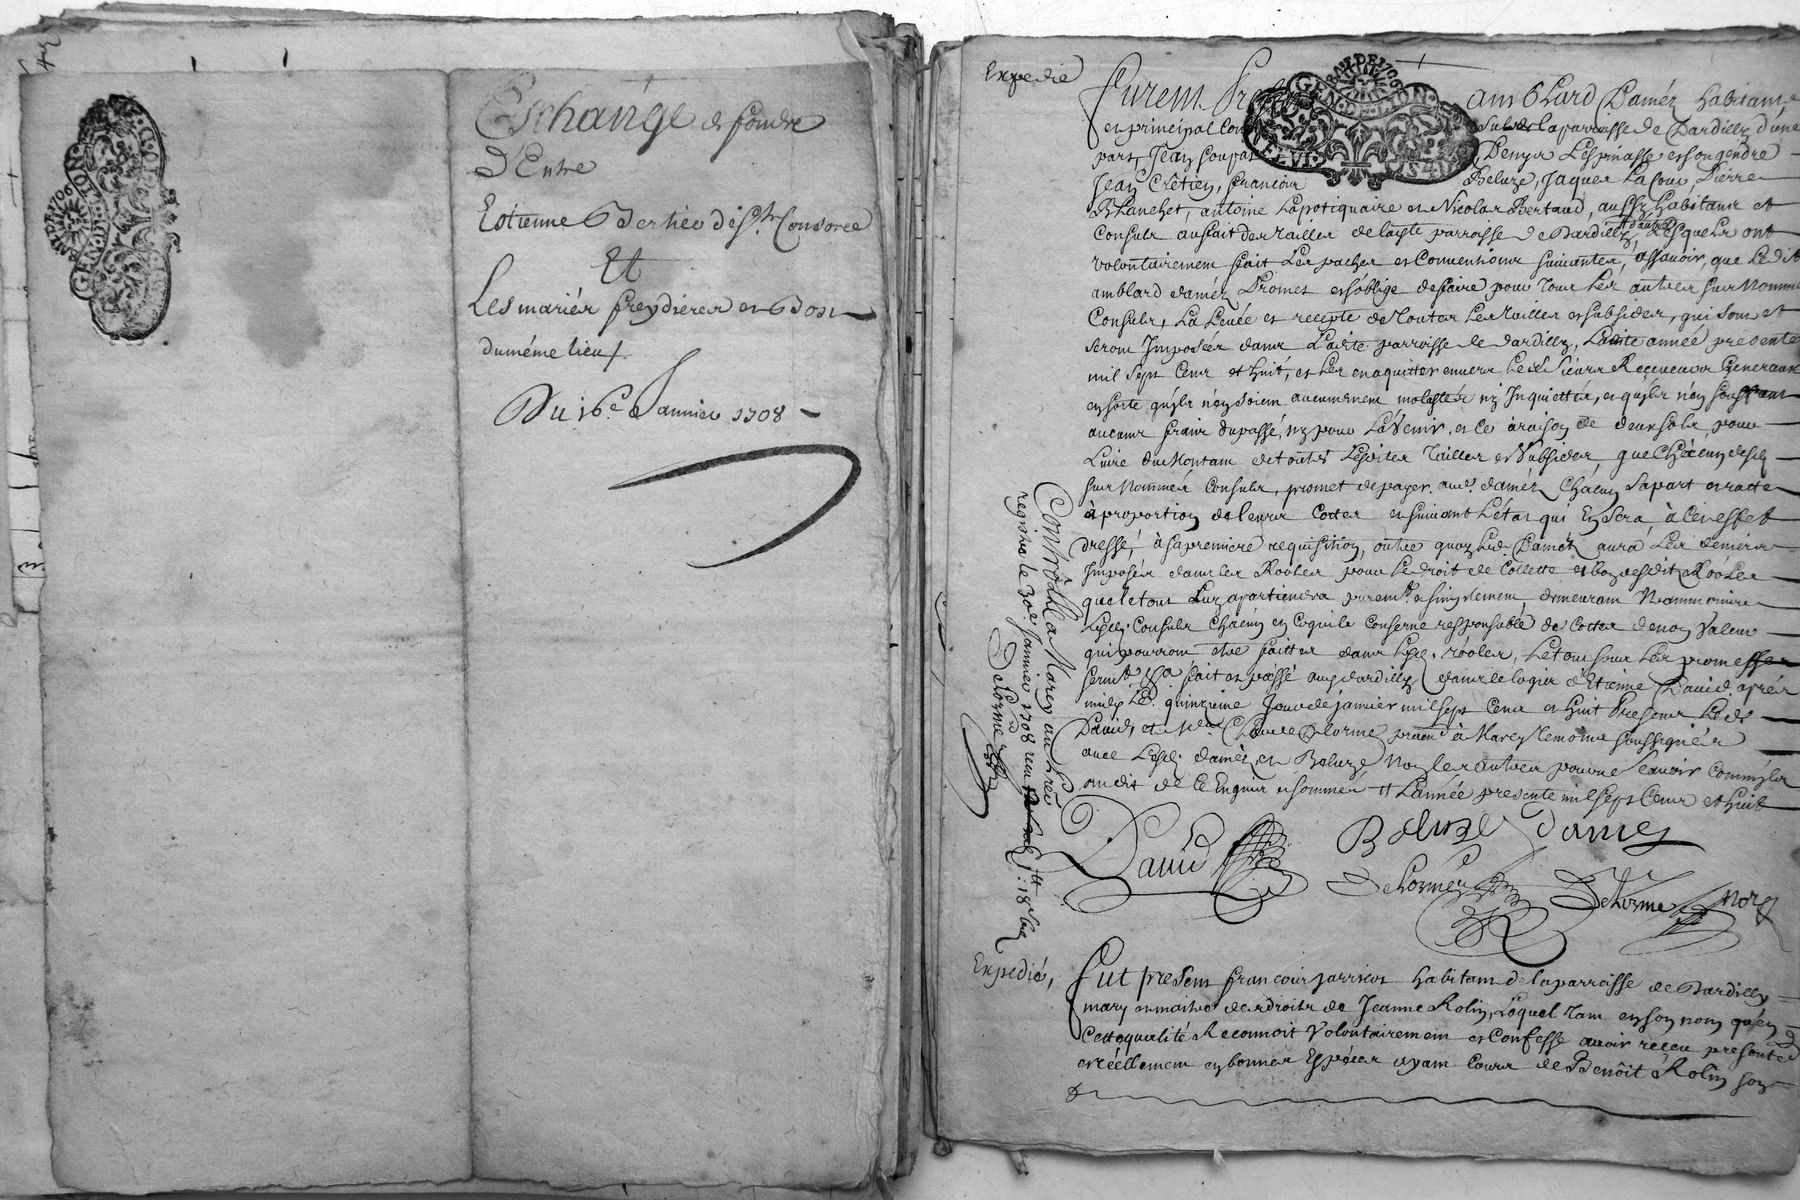 Eschange de fondre
D'Entre
Estienne Berliet dit St. Consorce
Et
Les mariés freydieres et
du méme lieu
Du 16e Janvier 1708
GEN. DE LION
Expedié
Furent amblard Daméz habitant
et principal sul de la parroisse de Dardilly d'une
part, Jean Denyse Lespinasse et son gendre
Jean Crêtien, francois Beluze, Jaques Lafont, Pierre
Blanchet, antoine Lapotiquaire et Nicolas Bertaud, aussy habitans et
Consuls au fait des tailles de laditte parroisse de Dardilly, Lesquels ont
volontairement fait Les paches et Conventions suivantes, assavoir, que Ledit
amblard daméz Promet et s'oblige de faire pour tous Les autres sus Nommés
Consuls, La Levée et recepte de toutes Les tailles et subsides, qui sont et
seront Imposées dans Ladite parroisse de dardilly, Ladite année presente
mil sept Cent et huit, et Les en aquitter envers Lesdits Sieurs Receveurs Generaux
en sorte qu'ils n'en soient aucunement molestés ny Inquiettés, et qu'ils n'en
aucuns frais du passé, ny pour L'avenir, et ce à raison de deux sols, pour
Livre du Montant de toutes Lesdites Tailles et Subsides, que Chacun desd.
sus Nommés Consuls, promet de payer aud. daméz Chacun sa part et ratte
à proportion de leurs Cottes et suivant L'état qui En sera, à Cet effet
dressé, à sa premiere requisition, outre quoy Led. Daméz aura Les deniers
Imposés dans les Rooles pour Le droit de Collette et desdits Rooles
que le tout Luy apartiendra purement et simplement, demeurant Neanmoins
Lesd. Consuls Chacun en Ce qui le Conserne responsable des Cottes de non Valeur
qui pourront etre faittes dans Lesd. rooles, Le tout sous Les promesses
serment &a fait et passé aud. dardilly dans le logis d'Etienne David, aprés
midy Le quinzieme Jour de janvier mil sept Cent et huit Presents Led.
David, et Me. Claude Delorme praticien à Marcy temoins soussignés
avec Lesd. daméz, et Beluze Non les autres pour ne Savoir Comm'ils
ont dit de Ce Enquis et sommés L'année presente mil sept Cent et huit
David Beluze Daméz
Delorme Delorme nore
Controollé a Marcy au Livre
registre le 30e. janvier 1708 receu
Delorme
Expedié,
Fut present francois jarricot habitant de la parroisse de Dardilly
mary et maitre des droits de Jeanne Rolin, Lequel tant en son nom qu'en
Cette qualité Reconnoit Volontairement et Confesse avoir receu presente
et réellement en bonnes Especes ayant Cours de Benoît Rolin son